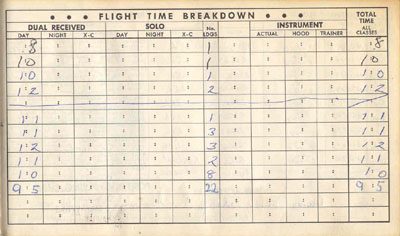 • • • FLIGHT TIME BREAKDOWN • • • TOTAL TIME
DUAL RECEIVED SOLO No. LDGS INSTRUMENT ALL CLASSES
DAY NIGHT X-C DAY NIGHT X-C ACTUAL HOOD TRAINER
:8 : : : : : 1 : : : :8
1:0 : : : : : 1 : : : 1:0
1:0 : : : : : 1 : : : 1:0
1:2 : : : : : 2 : : : 1:2
: : : : : : : : : :
1:1 : : : : : 1 : : : 1:1
1:1 : : : : : 3 : : : 1:1
1:2 : : : : : 3 : : : 1:2
1:1 : : : : : 2 : : : 1:1
1:0 : : : : : 8 : : : 1:0
9:5 : : : : : 22 : : : 9:5
: : : : : : : : : :
: : : : : : : : : :